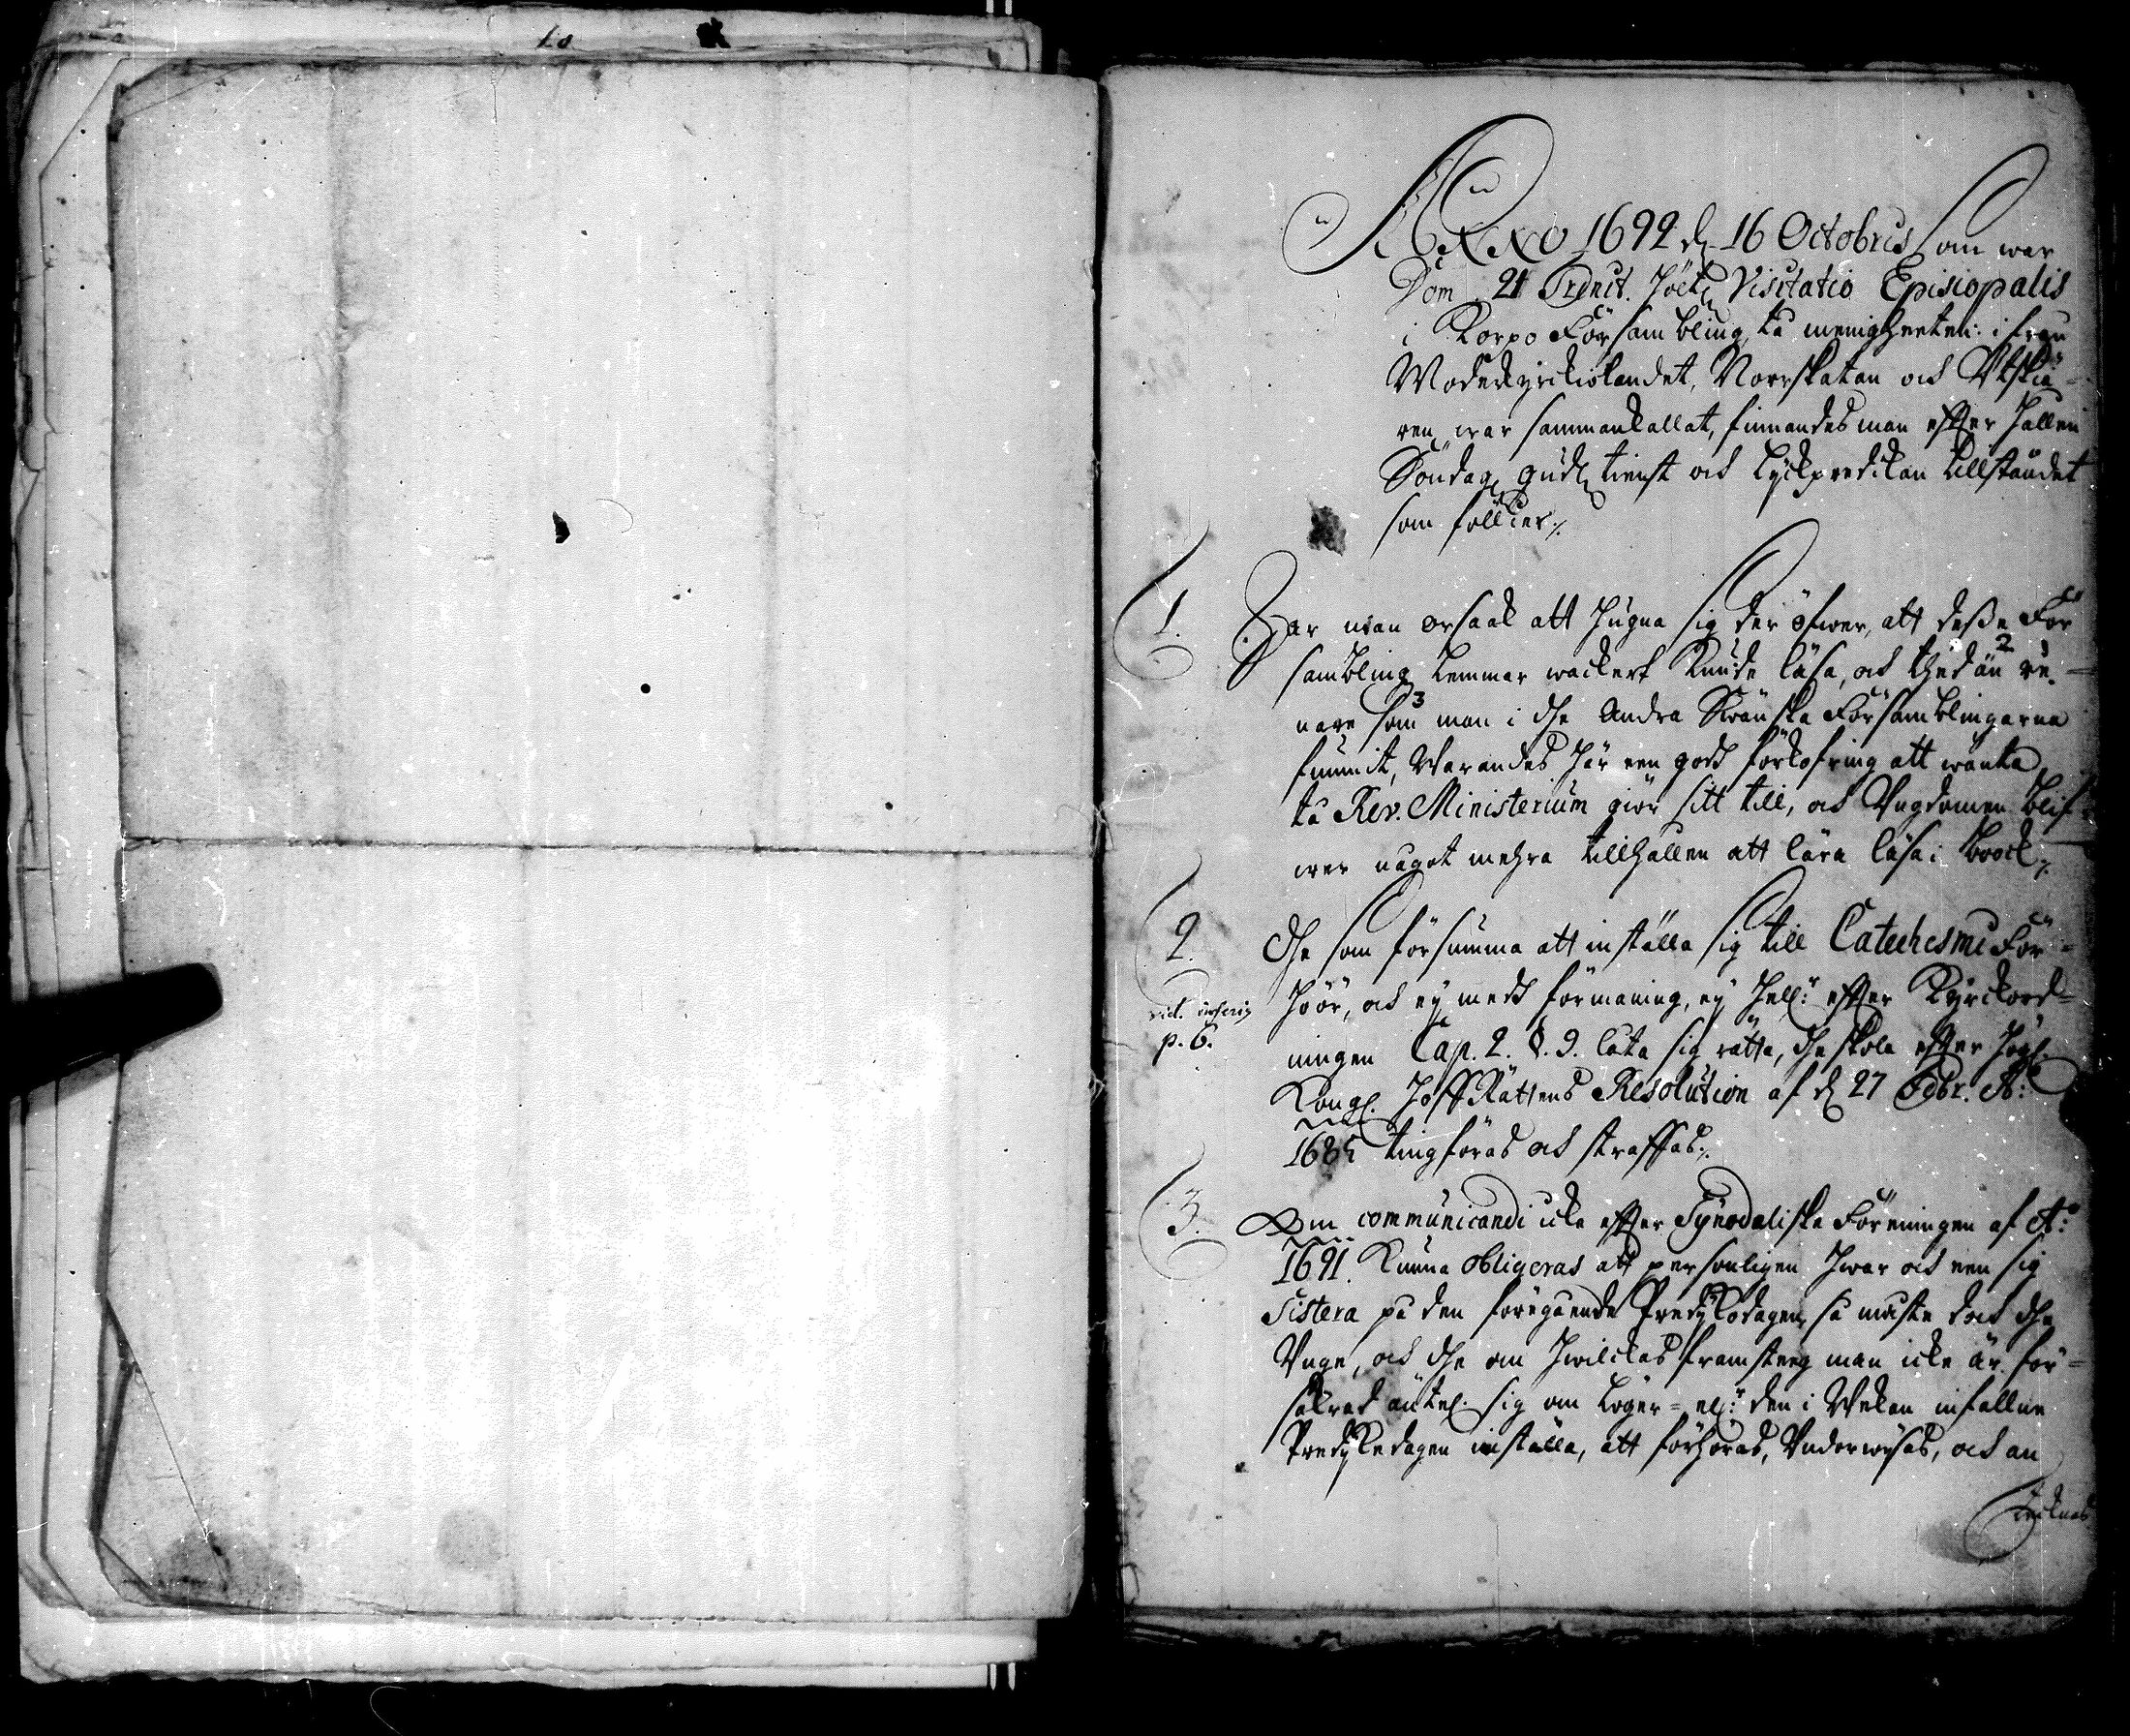 Anno 1692 d. 16 Octobris som war
Dom. 21 Trinit. höltz Visitatio Episcopalis
i Korpo Försambling, tå menigheeten ifrån
Moderkyrckiolandet, Norrskatan och Utskiä-
ren war sammankallat, finnandes man effter hållen
Söndagz gudztienst och lyckpredikan tillståndet
som föllier./.
1. Har man orsaak att hugna sig der öfwer, att desse För
sambling lemmar wackert kunde läsa, och thed än 2 re-
nare som 3 man i the andra Swänska Församblingarna
funnidt, Warandes här een godh förkofring att wänta,
tå Rev. Ministerium giör sitt till, och Ungdomen blif-
wer något mehra tillhållen att lära läsa i book./.
2. The som försumma att inställa sig till Catechismi För-
höör, och ey medh förmaning, ey hell:r effter Kyrckiord-
vid. inferiq
p. 6.
ningen Cap. 2. §. 9. låta sig rätta, the skola effter högl.
Kongl. HoffRättens Resolution af d. 27 Octbr. A:o
1685 tingföras och straffas./.
3. Om communicandi icke effter Synodaliske Föreningen af A:o
1691. Kunna obligeras att personligen hwar och een sig
Sistera på den föregående Predykodagen, så måste doch the
Unge, och the om hwilckas framsteeg man icke är för-
säkrad äntel. sig om löger- ell:r den i Wekan infallne
Predykedagen inställa, att förhöras, Underwysas, och an
tecknas